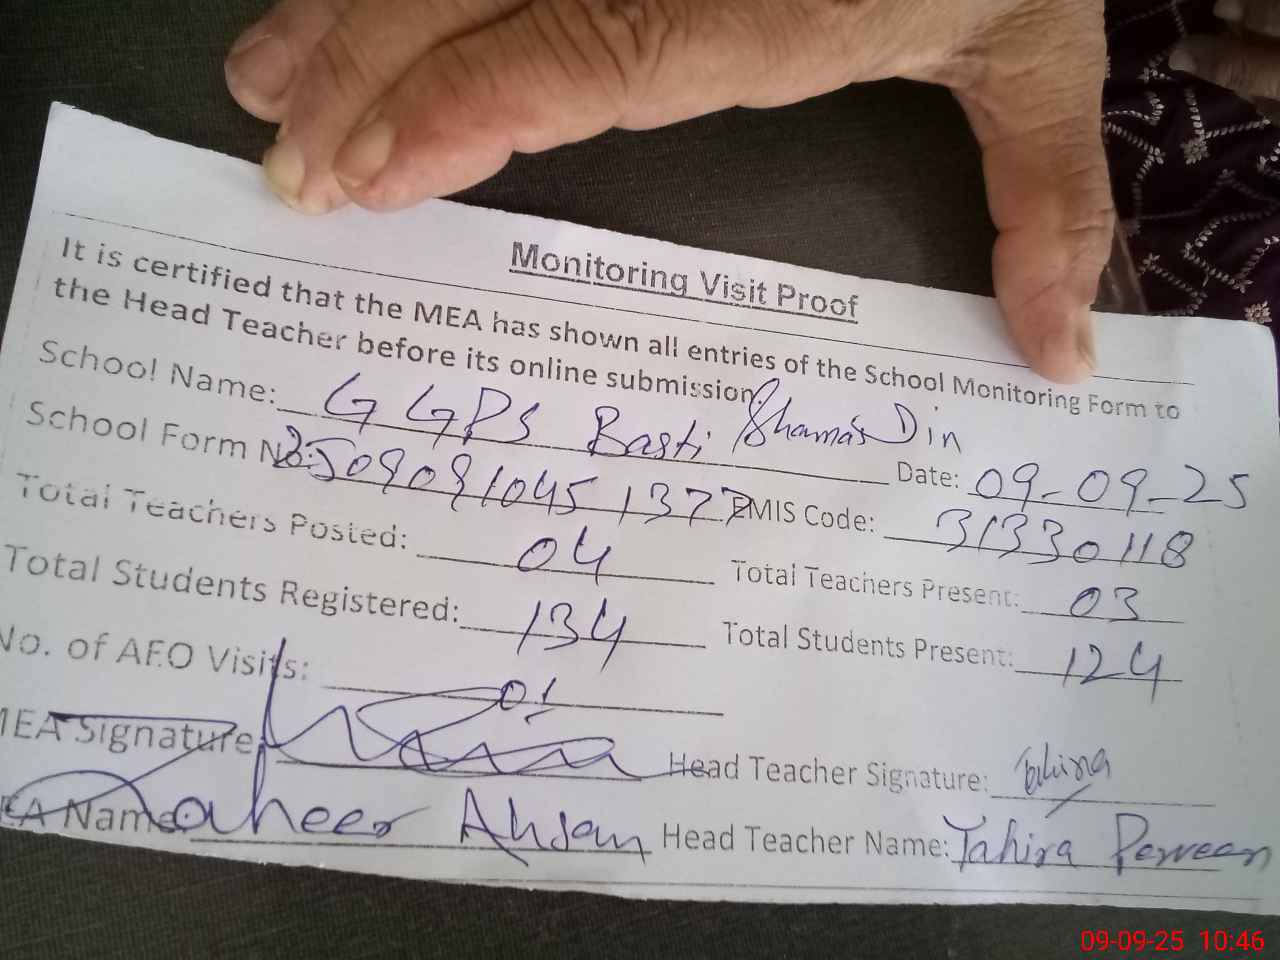 Monitoring Visit Proof
It is certified that the MEA has shown all entries of the School Monitoring Form to
the Head Teacher before its online submission.
School Name: GGPS Basti Shamas Din Date: 09-09-25
School Form No: 25090910451377 EMIS Code: 31330118
Total Teachers Posted: 04 Total Teachers Present: 03
Total Students Registered: 134 Total Students Present: 124
No. of AEO Visits: 01
MEA Signature: Head Teacher Signature: Tahira
MEA Name: Zaheer Ahsan Head Teacher Name: Tahira Perveen
09-09-25 10:46